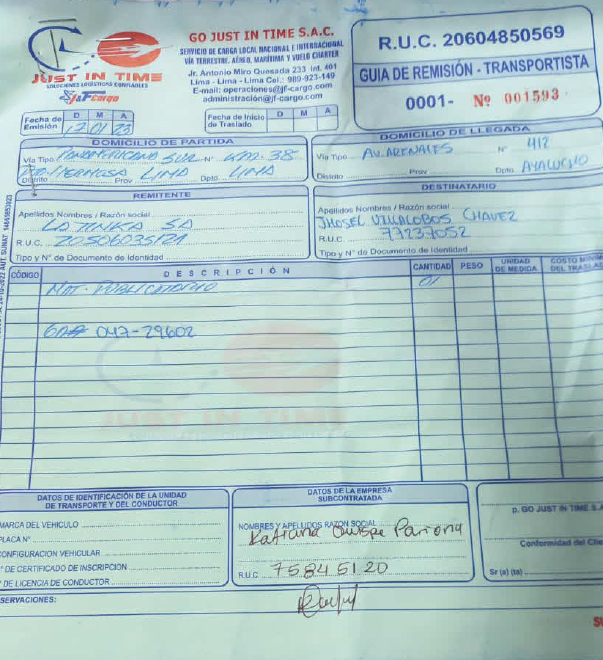 GO JUST IN TIME S.A.C.
SERVICIO DE CARGA LOCAL NACIONAL E INTERNACIONAL
VÍA TERRESTRE, AÉREO, MARÍTIMA Y VUELO CHARTER
Jr. Antonio Miro Quesada 233 Int. 401
Lima - Lima - Lima Cel.: 989-923-149
E-mail: operaciones@jf-cargo.com
administración@jf-cargo.com
JUST IN TIME
SOLUCIONES LOGÍSTICAS CONFIABLES
J&F Cargo
R.U.C. 20604850569
GUIA DE REMISIÓN - TRANSPORTISTA
0001- Nº 001593
Fecha de Emisión D M A 12 01 23
Fecha de Inicio de Traslado D M A
DOMICILIO DE PARTIDA
Vía Tipo PANAMERICANA SUR Nº KM. 38
Distrito HERMOSA Prov LIMA Dpto. LIMA
DOMICILIO DE LLEGADA
Vía Tipo AV. ARENALES Nº 412
Distrito Prov Dpto. AYACUCHO
REMITENTE
Apellidos Nombres / Razón social
LA TINKA SA
R.U.C. 20506035121
Tipo y Nº de Documento de Identidad
DESTINATARIO
Apellidos Nombres / Razón social
JHOSEL VILLALOBOS CHAVEZ
R.U.C. 77237052
Tipo y Nº de Documento de Identidad
CÓDIGO DESCRIPCIÓN CANTIDAD PESO UNIDAD DE MEDIDA COSTO DEL
MAT. PUBLICITARIO 01
047-29602
JUST IN TIME
DATOS DE IDENTIFICACIÓN DE LA UNIDAD
DE TRANSPORTE Y DEL CONDUCTOR
MARCA DEL VEHICULO
PLACA Nº
CONFIGURACION VEHICULAR
º DE CERTIFICADO DE INSCRIPCIÓN
º DE LICENCIA DE CONDUCTOR
DATOS DE LA EMPRESA
SUBCONTRATADA
NOMBRES Y APELLIDOS RAZON SOCIAL
Katiana Quispe Pariona
R.U.C. 75845120
p. GO JUST IN TIME S.A
Conformidad del Clie
Sr (a) (ta)
SERVACIONES: